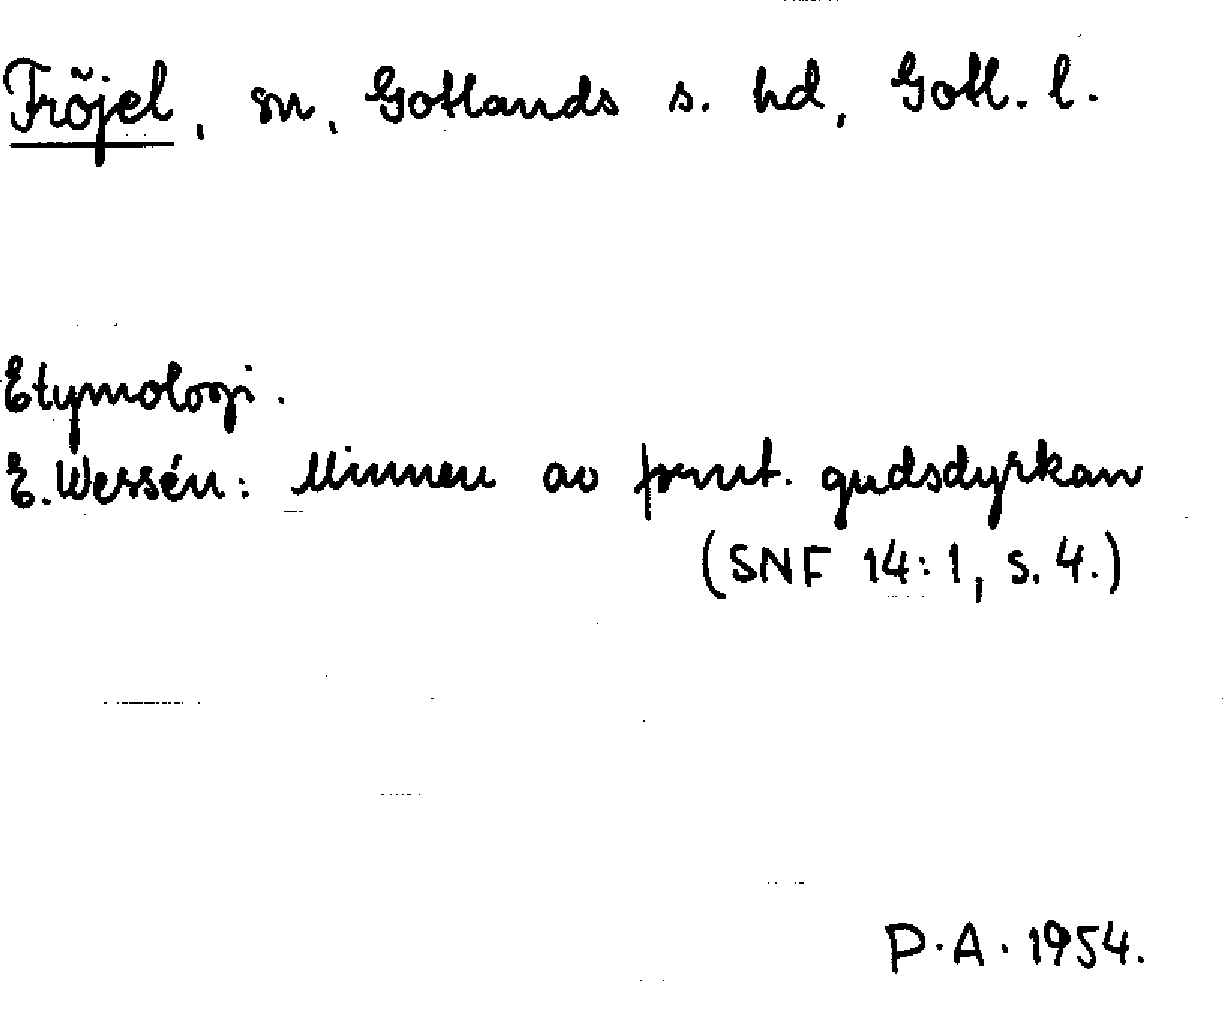 Fröjel, sn, Gotlands s. hd, Gotl. l.
Etymologi.
E. Wessén: Minnen av fornt. gudsdyrkan
(SNF 14:1, s. 4.)
P. A. 1954.